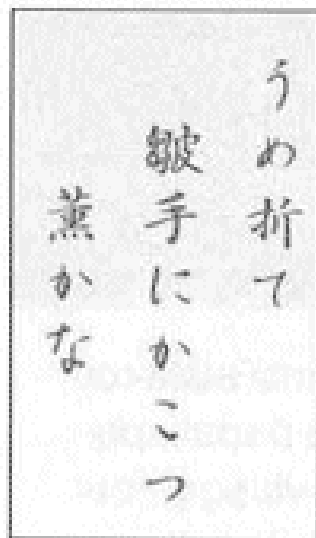 うめ折て
皺手にかこつ
薫かな